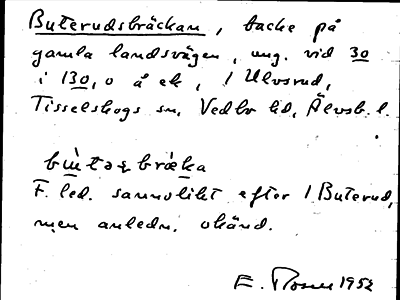 Buterudsbräckan, backe på
gamla landsvägen, ung. vid 30
i 130,0 å ek, 1 Ulvsrud,
Tisselskogs sn, Vedbo hd, Älvsb. l.
F. led. sannolikt efter 1 Buterud,
men anledn. okänd.
E. Rosen 1952